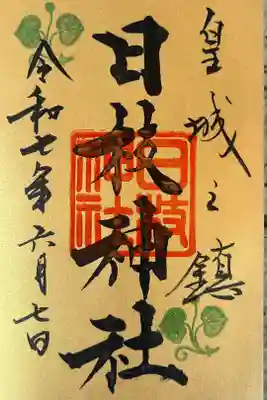 皇城之鎮
日枝神社
令和七年六月七日
日枝神社